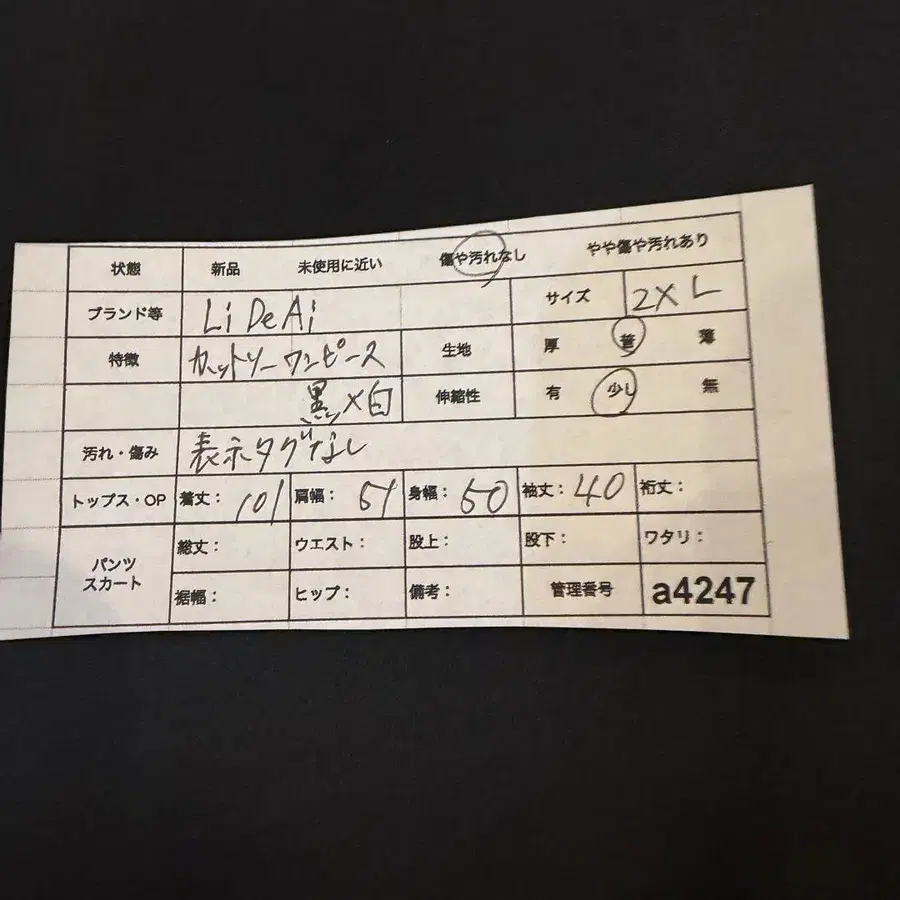 状態 新品 未使用に近い 傷や汚れなし やや傷や汚れあり
ブランド等 Li De Ai サイズ 2XL
特徴 カットソーワンピース 生地 厚 普 薄
黒×白 伸縮性 有 少し 無
汚れ・傷み 表示タグなし
トップス・OP 着丈: 101 肩幅: 51 身幅: 50 袖丈: 40 裄丈:
パンツ スカート 総丈: ウエスト: 股上: 股下: ワタリ:
裾幅: ヒップ: 備考: 管理番号 a4247